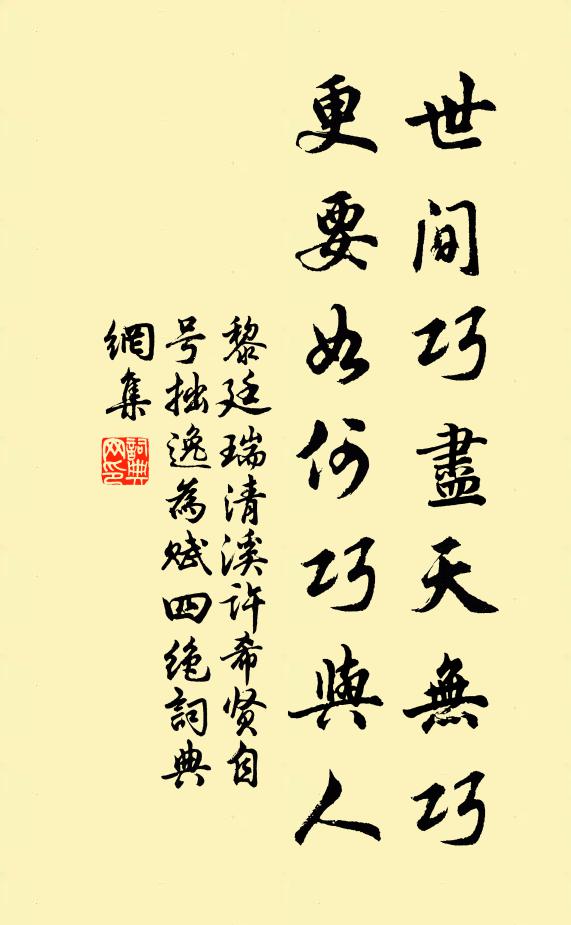 世間巧盡天無巧
更要如何巧與人
黎廷瑞清溪許希贤自
号拙逸為赋四绝詞典
網集
詞典网印